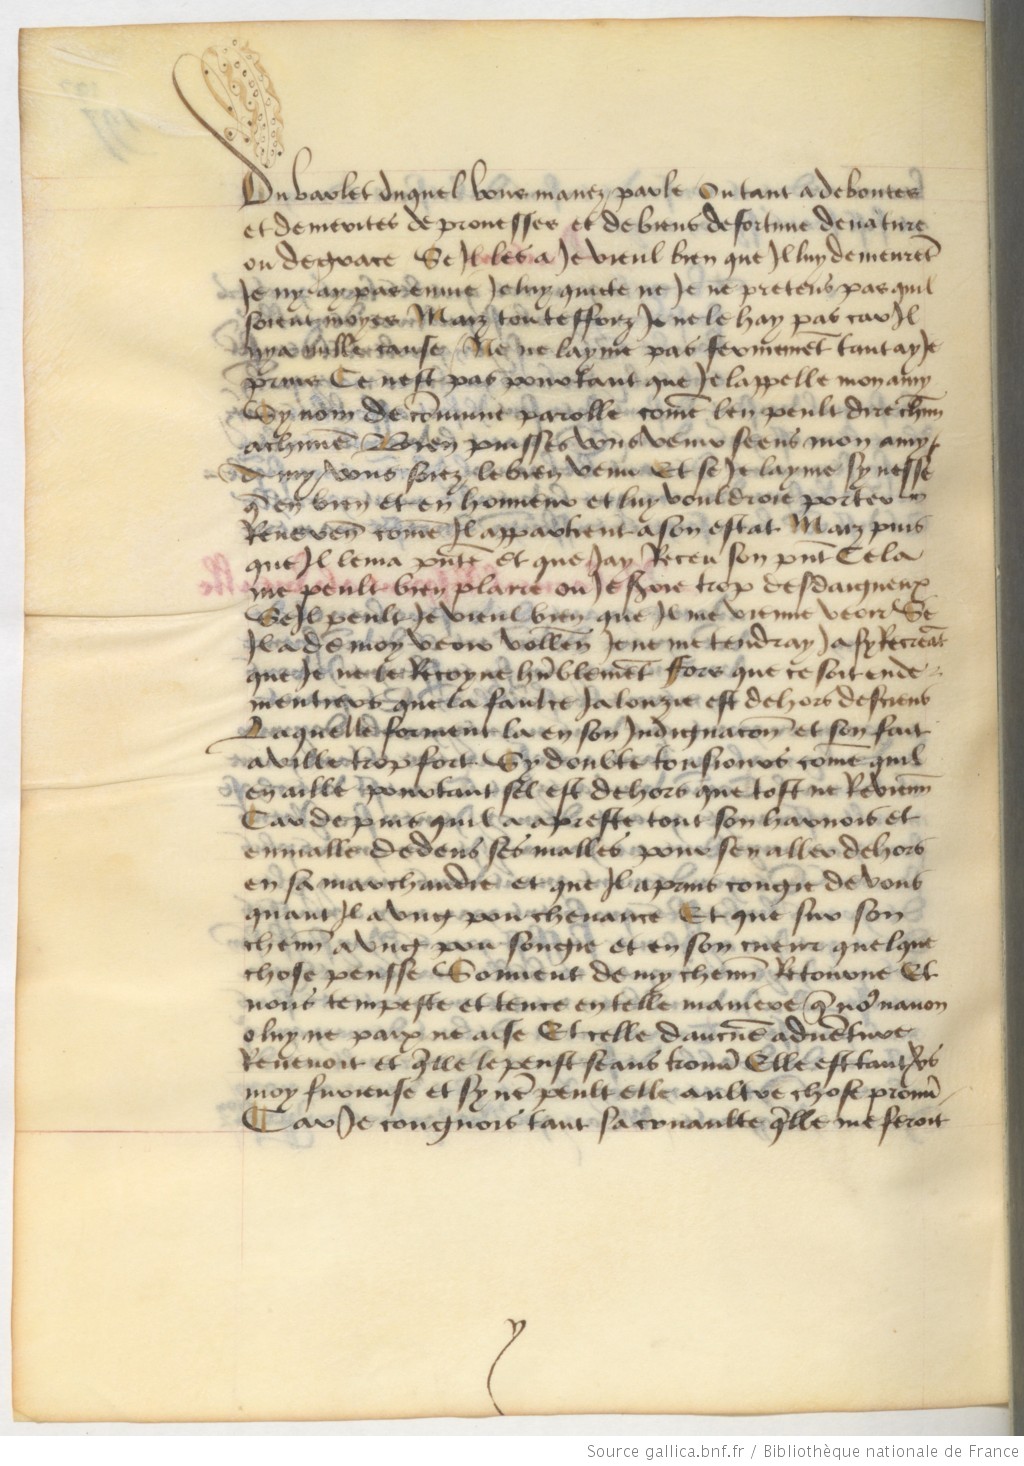 Du varlet duquel vous mavez parle Ou tant a de bontes
et de merites de prouesses et de biens de fortune de nature
ou de grace Se Il les a Je vieul bien que Il luy demeurēt
Je ny ay pas envie Je luy quicte ne Je ne pretens pas quil
soient moyes Maiz toutefforz Je ne le hay pas car Il
ny a nulle cause Ne ne layme pas fermemēt tant ay Je
Ce nest pas pourtant que Je lappelle mon amy
Sy nom de cōmune parolle comē len peult dire chūn
a chūne Bien puisses vous venir seens mon amy
vous soiez le bien venu Et se Je layme sy nesse
q̄ en bien et en honneur et luy vouldroie porter
Reverēn comē Il appartient a son estat Maiz puis
que Il lema pn̄te et que Jay Receu son pn̄t Cela
me peult bien plaire ou Je seroie trop desdaigneux
Se Il peult Je vieul bien que Il me vienne veoir Se
Il a de moy veoir voullen Je ne me tendray Ja sy Recreāt
que Je ne le Recoyve hūblemēt Fors que ce soit ende
mentiers que la faulce Jalouzie est dehors de ceens
Laquelle forment la en son Indignacōn et son fait
aville trop fort Sy doubte tousiours comē quil
en aille pourtant sel est dehors que tost ne Reviēnn
Car depuis quil a apreste tout son harnois et
enmalle dedens ses malles pour sen aller dehors
en sa marchandie et que Il a prins congie de vous
quant Il a ung pou chevauce Et que sur son
chemī a ung pou songie et en son cueur quelque
chose pensse Souvent de my chemī Retourne Et
nous tempeste et tence en telle maniere q̄ noꝰ navon
o luy ne paix ne aise Et celle daucūe advēture
Revenoit et q̄lle le peust seans trouū Elle est tant vs
moy furieuse et sy nē peult elle aultre chose prouū
Car Je congnois tant sa cruaulte q̄lle me feroit
Source gallica.bnf.fr / Bibliothèque nationale de France